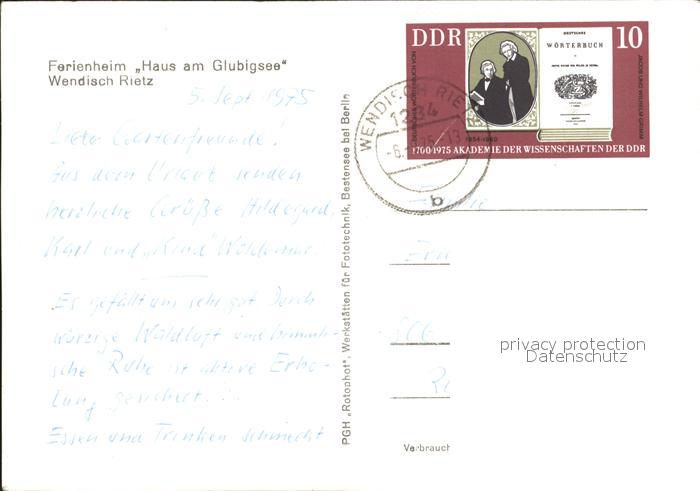 Ferienheim „Haus am Glubigsee"
Wendisch Rietz
5. Sept 1975
Liebe Gartenfreunde!
Aus dem Urlaub senden
herzliche Grüße Hildegard,
Karl und „Kind" Waldemar.
Es gefällt uns sehr gut. Durch
würzige Waldluft und himmli-
sche Ruhe ist aktive Erho-
lung gesichert.
Essen und Trinken schmeckt
PGH „Rotophot", Werkstätten für Fototechnik, Bestensee bei Berlin
DDR
10
DEUTSCHES
WÖRTERBUCH
JACOB UND WILHELM GRIMM
1854-1960
1700/1975 AKADEMIE DER WISSENSCHAFTEN DER DDR
WENDISCH RIETZ
1234
b
Familie
privacy protection
Datenschutz
Verbrauch